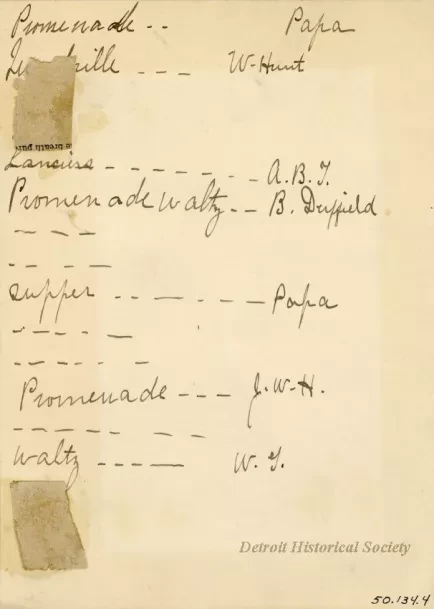 Promenade -- Papa
--- W-Hunt
Lanciers ------- A.B.T.
Promenade Waltz -- B. Duffield
---
-- --
supper -- ---- Papa
----
------
Promenade --- J.W-H.
------
Waltz ----- W. T.
Detroit Historical Society
50.134.4